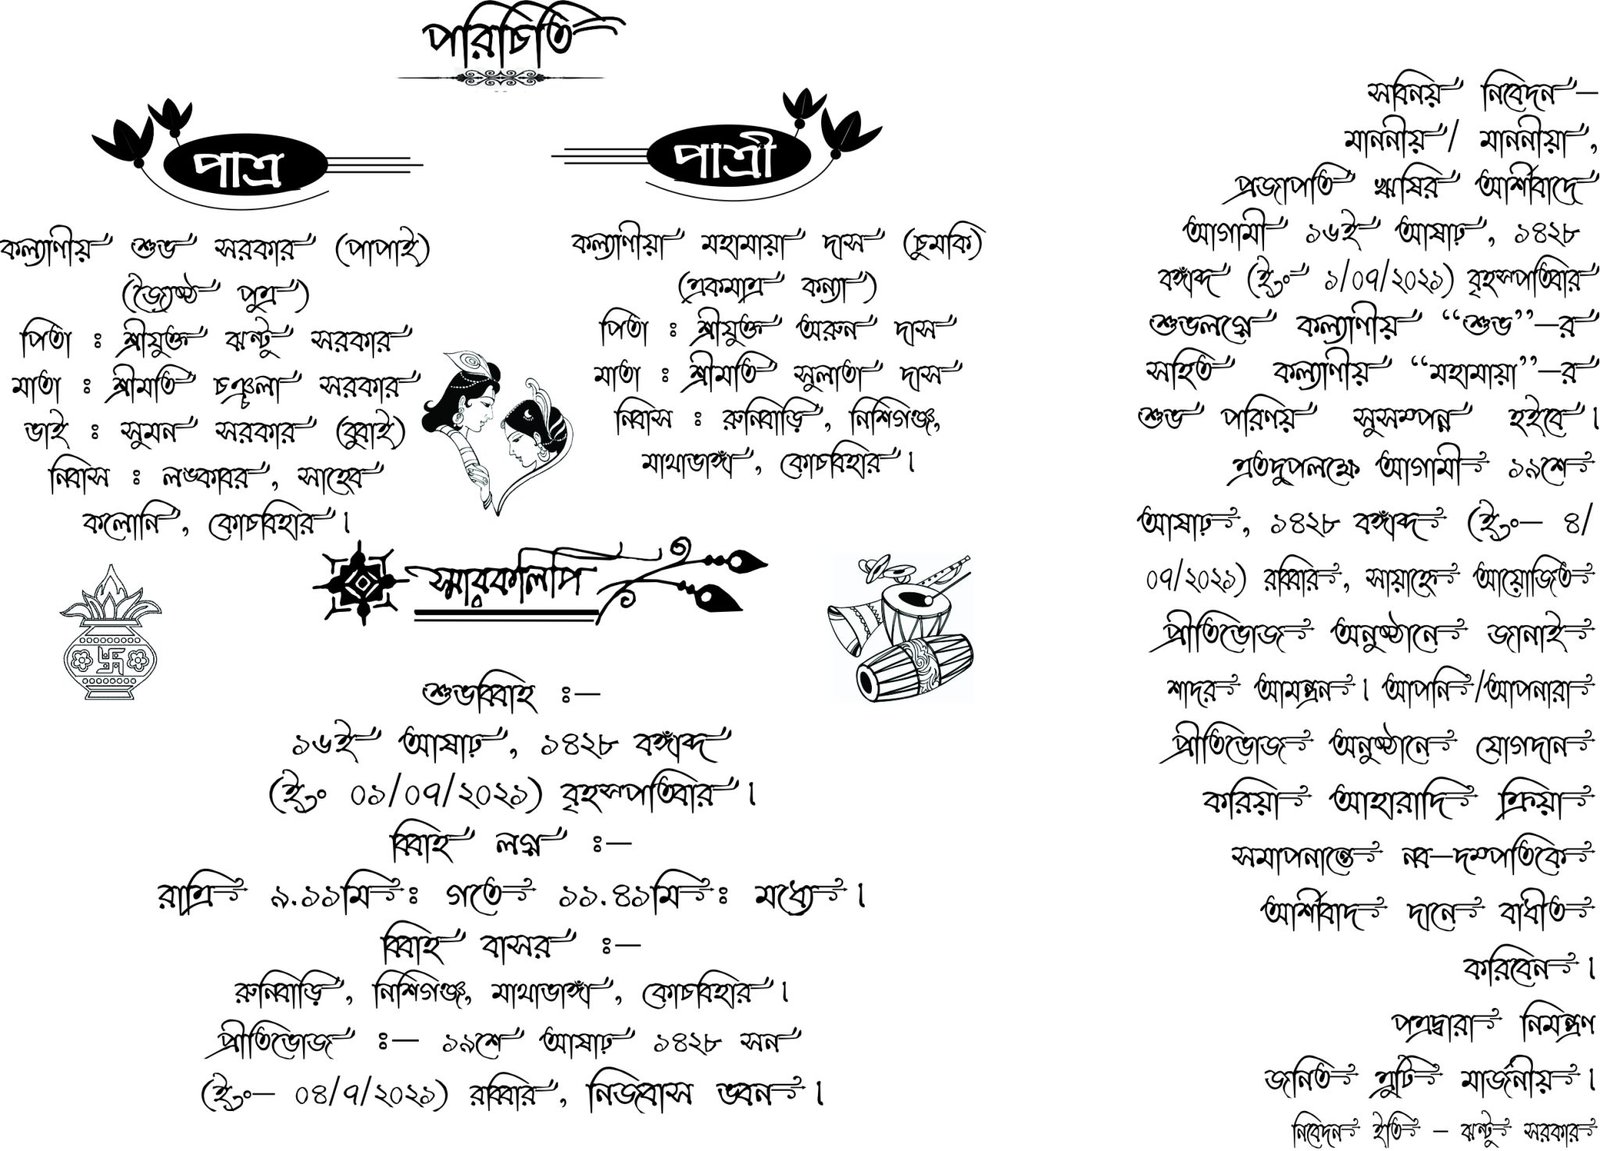 পরিচিতি
পাত্র
কল্যাণীয় শুভ সরকার (পাপাই)
(জ্যেষ্ঠ পুত্র)
পিতা : শ্রীযুক্ত ঝন্টু সরকার
মাতা : শ্রীমতি চঞ্চলা সরকার
ভাই : সুমন সরকার (বুবাই)
নিবাস : লঙ্কাবর, সাহেব
কলোনি, কোচবিহার।
পাত্রী
কল্যাণীয়া মহামায়া দাস (চুমকি)
(একমাত্র কন্যা)
পিতা : শ্রীযুক্ত অরুন দাস
মাতা : শ্রীমতি সুলাতা দাস
নিবাস : রুনিবাড়ি, নিশিগঞ্জ,
মাথাভাঙ্গা, কোচবিহার।
স্মারকলিপি
শুভবিবাহ ঃ–
১৬ই আষাঢ়, ১৪২৮ বঙ্গাব্দ
(ইং ০১/০৭/২০২১) বৃহস্পতিবার।
বিবাহ লগ্ন ঃ–
রাত্রি ৯.১১মিঃ গতে ১১.৪১মিঃ মধ্যে।
বিবাহ বাসর ঃ–
রুনিবাড়ি, নিশিগঞ্জ, মাথাভাঙ্গা, কোচবিহার।
প্রীতিভোজ ঃ– ১৯শে আষাঢ় ১৪২৮ সন
(ইং– ০৪/৭/২০২১) রবিবার, নিজবাস ভবন।
সবিনয় নিবেদন–
মাননীয়/ মাননীয়া,
প্রজাপতি ঋষির আর্শীবাদে
আগামী ১৬ই আষাঢ়, ১৪২৮
বঙ্গাব্দ (ইং ১/০৭/২০২১) বৃহস্পতিবার
শুভলগ্নে কল্যাণীয় “শুভ”–র
সহিত কল্যাণীয় “মহামায়া”–র
শুভ পরিণয় সুসম্পন্ন হইবে।
এতদুপলক্ষে আগামী ১৯শে
আষাঢ়, ১৪২৮ বঙ্গাব্দ (ইং– ৪/
০৭/২০২১) রবিবার, সায়াহ্নে আয়োজিত
প্রীতিভোজ অনুষ্ঠানে জানাই
শাদর আমন্ত্রন। আপনি/আপনারা
প্রীতিভোজ অনুষ্ঠানে যোগদান
করিয়া আহারাদি ক্রিয়া
সমাপনান্তে নব–দম্পতিকে
আর্শীবাদ দানে বাধীত
করিবেন।
পত্রদ্বারা নিমন্ত্রণ
জনিত ত্রুটি মার্জনীয়।
নিবেদন ইতি – ঝন্টু সরকার